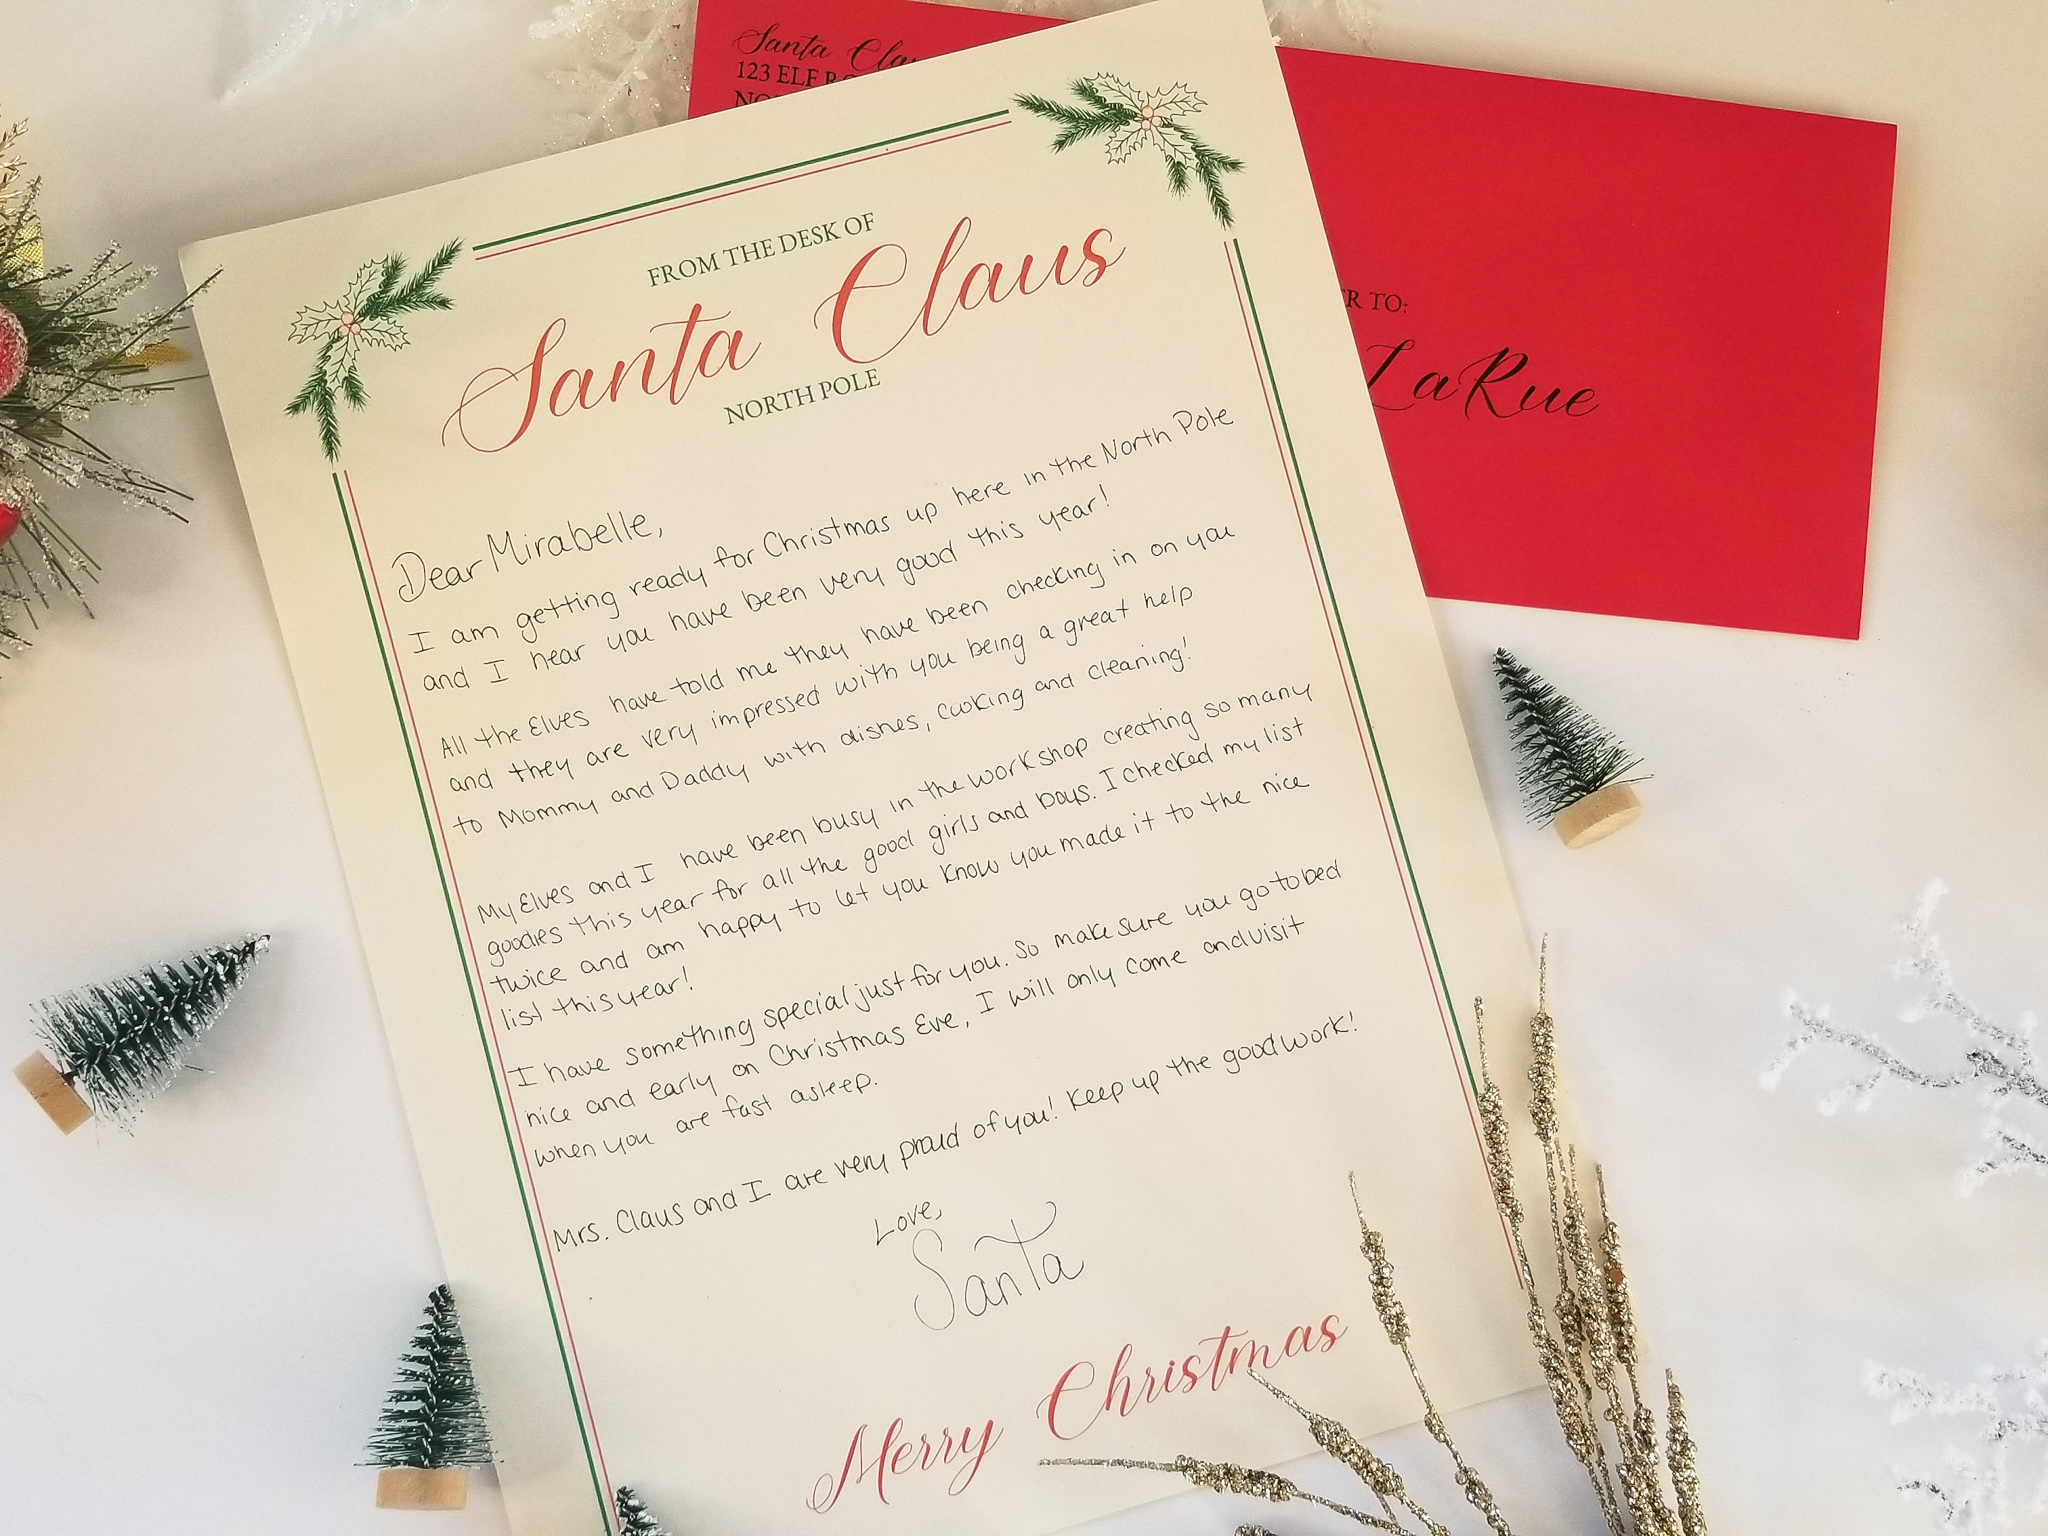 Santa
123 ELF
FROM THE DESK OF
Santa Claus
NORTH POLE
TO:
LaRue
Dear Mirabelle,
I am getting ready for Christmas up here in the North Pole
and I hear you have been very good this year!
All the Elves have told me they have been checking in on you
and they are very impressed with you being a great help
to Mommy and Daddy with dishes, cooking and cleaning!
My Elves and I have been busy in the workshop creating so many
goodies this year for all the good girls and boys. I checked my list
twice and am happy to let you know you made it to the nice
list this year!
I have something special just for you. So make sure you go to bed
nice and early on Christmas Eve, I will only come and visit
when you are fast asleep.
Mrs. Claus and I are very proud of you! Keep up the good work!
Love,
Santa
Merry Christmas